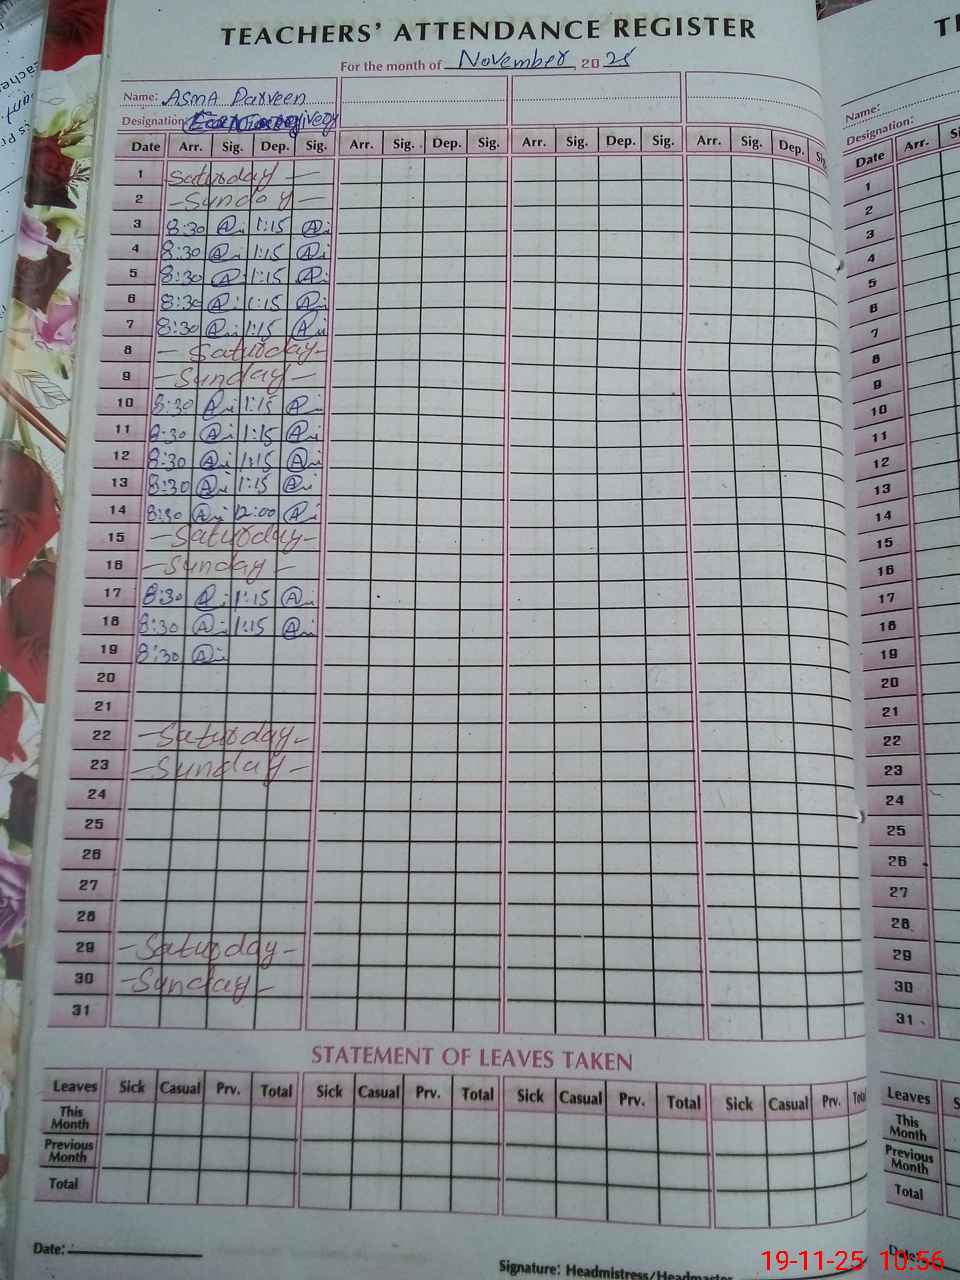 TEACHERS' ATTENDANCE REGISTER
For the month of November, 20 25
Name: ASMA Parveen
Designation:
Date Arr. Sig. Dep. Sig. Arr. Sig. Dep. Sig. Arr. Sig. Dep. Sig. Arr. Sig. Dep. Sig.
1 Saturday —
2 — Sunday —
3 8:30 1:15
4 8:30 1:15
5 8:30 1:15
6 8:30 1:15
7 8:30 1:15
8 — Saturday —
9 — Sunday —
10 8:30 1:15
11 8:30 1:15
12 8:30 1:15
13 8:30 1:15
14 8:30 12:00
15 — Saturday —
16 — Sunday —
17 8:30 1:15
18 8:30 1:15
19 8:30
20
21
22 — Saturday —
23 — Sunday —
24
25
26
27
28
29 — Saturday —
30 — Sunday —
31
STATEMENT OF LEAVES TAKEN
Leaves Sick Casual Prv. Total Sick Casual Prv. Total Sick Casual Prv. Total Sick Casual Prv. Total
This Month
Previous Month
Total
Date:
Signature: Headmistress/Headmaster
Name:
Designation:
Date Arr.
1
2
3
4
5
6
7
8
9
10
11
12
13
14
15
16
17
18
19
20
21
22
23
24
25
26
27
28
29
30
31
Leaves
This Month
Previous Month
Total
Date:
19-11-25 10:56